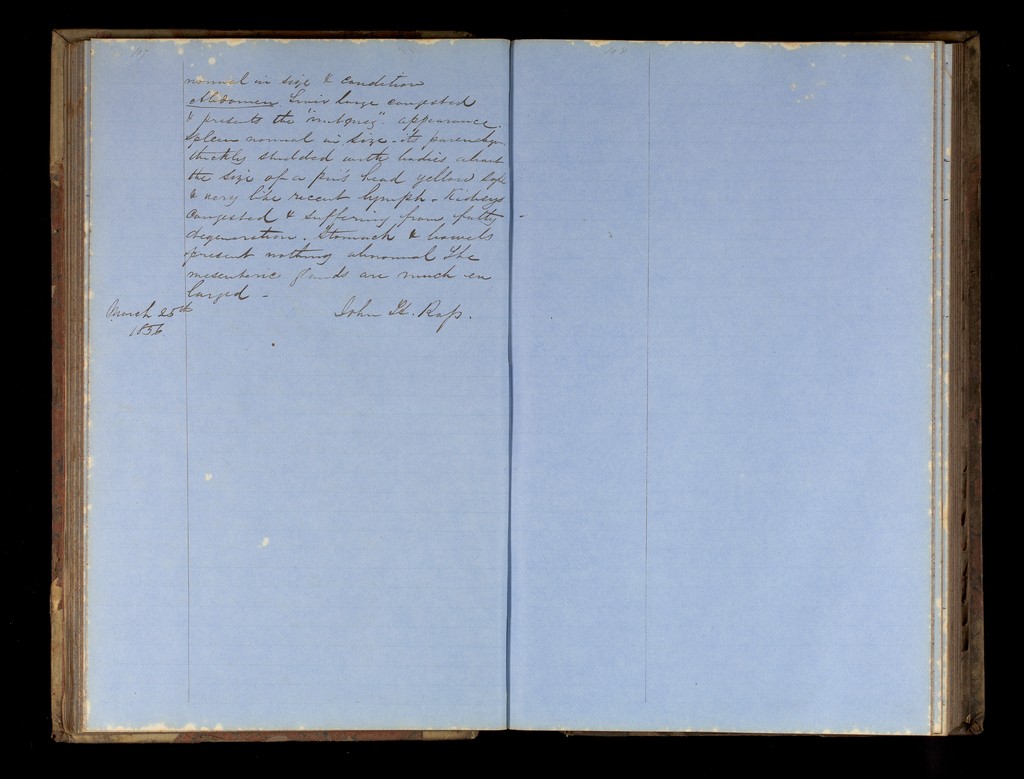 107
108
normal in size & condition
Abdomen. Liver large congested
& presents the "nutmeg" appearance.
Spleen normal in size - its parenchym
thickly studded with bodies about
the size of a pin's head yellow soft
& very like recent lymph - Kidneys
congested & suffering from fatty
degeneration. Stomach & bowels
present nothing abnormal The
mesenteric glands are much en
larged -
March 25th
1856.
John H.